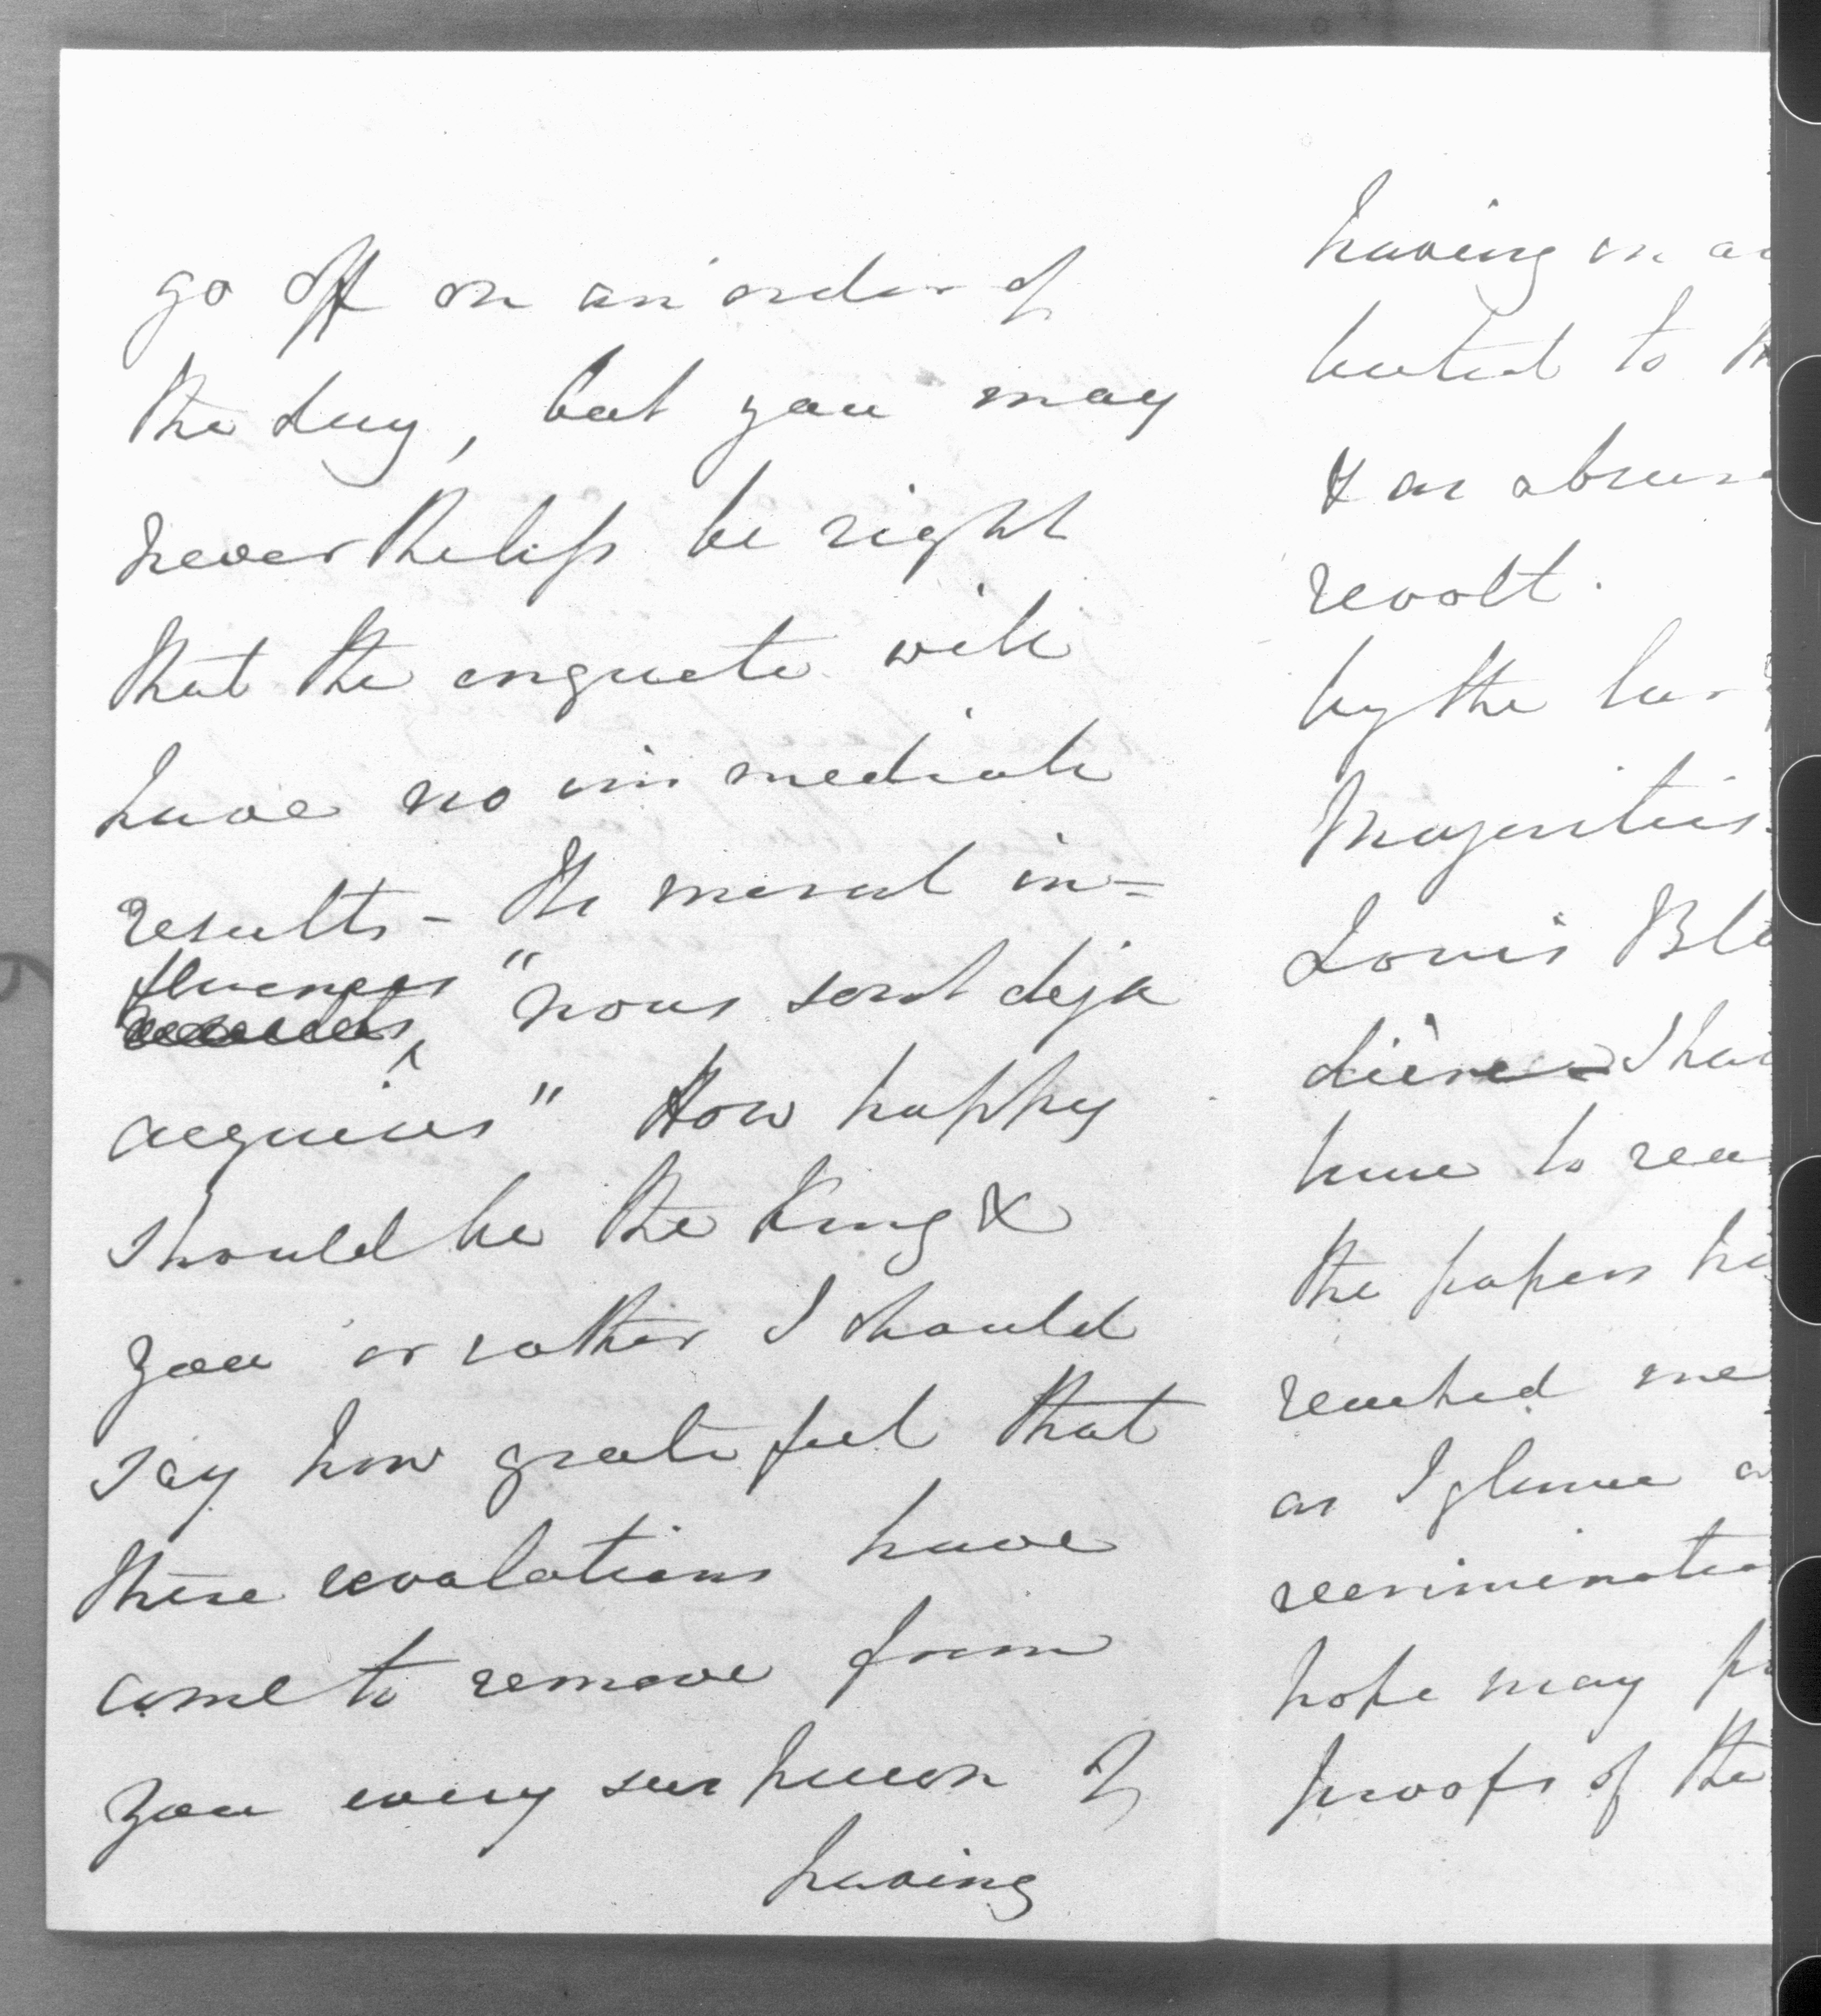 go off on an order of
the day, but you may
never theless be right
that the enquete will
have no immediate
results - the moral in=
fluences "nous sont deja
acquises" How happy
should be the King &
you or rather I should
say how grateful that
these revolations have
come to remove from
you every suspicion of
having
having in a
buted to
& an absur
revolt.
by the lar
Majorities.
Louis Bla
dière I hav
time to rea
the papers
reached me
as I glance
recriminatio
hope may
proofs of the